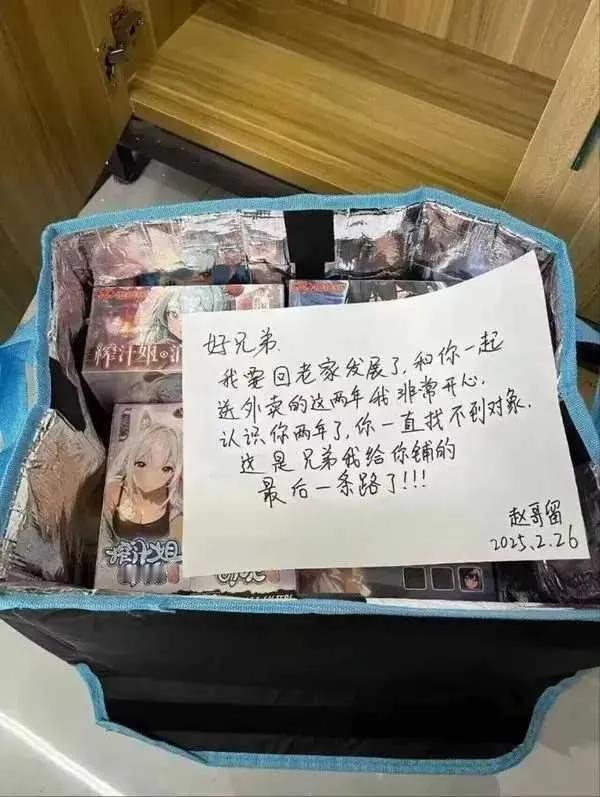 好兄弟.
我要回老家发展了,和你一起
送外卖的这两年我非常开心.
认识你两年了,你一直找不到对象.
这是兄弟我给你铺的
最后一条路了!!!
赵哥留
2025.2.26
榨汁姐の
榨汁姐